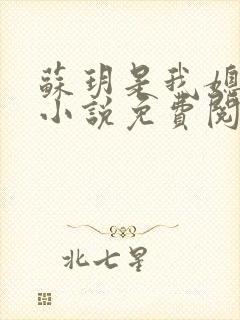 蘇玥是我媳
小說免費閱
北七星